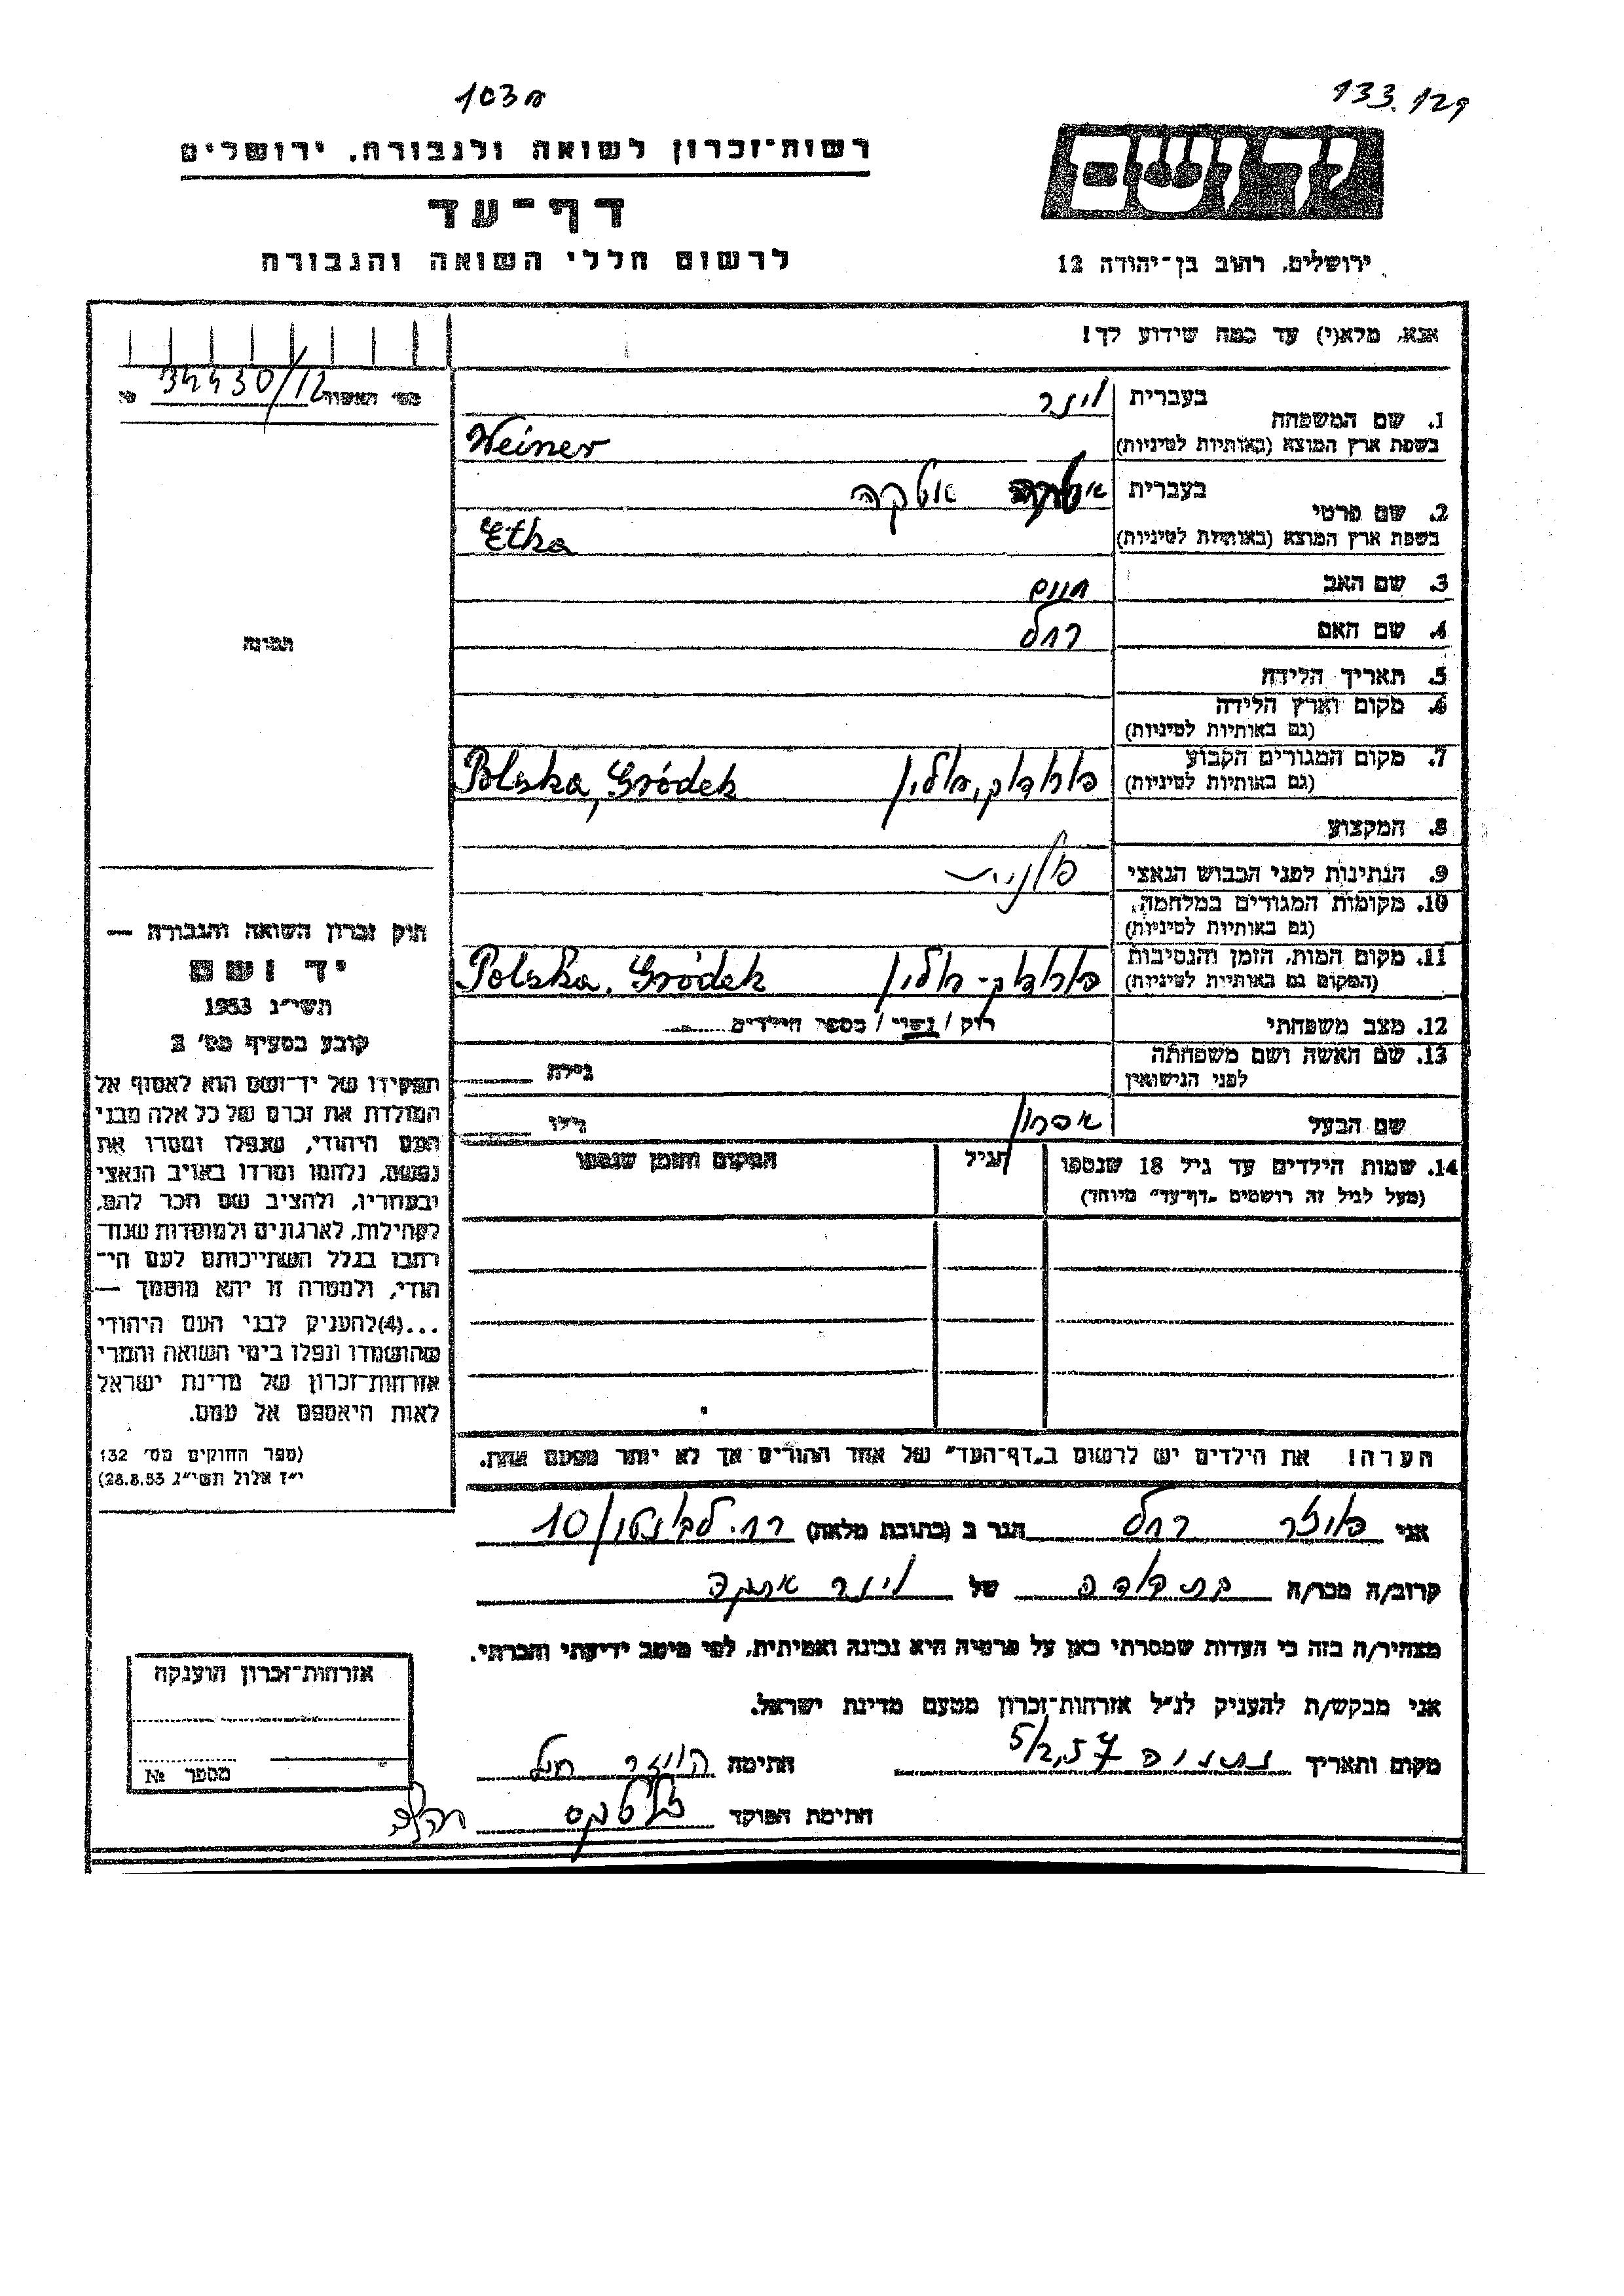 103א
133.129
רשות־זכרון לשואה ולגבורה, ירושלים
דף־עד
לרשום חללי השואה והגבורה
יד ושם
ירושלים, רחוב בן־יהודה 12
אנא, מלא(י) עד כמה שידוע לך!
מס׳ האשור 34430/12
1. שם המשפחה בעברית וינר
בשפת ארץ המוצא (באותיות לטיניות) Weiner
2. שם פרטי בעברית אטקה
בשפת ארץ המוצא (באותיות לטיניות) Etka
3. שם האב חיים
4. שם האם רחל
5. תאריך הלידה
6. מקום וארץ הלידה
(גם באותיות לטיניות)
7. מקום המגורים הקבוע Polska, Gródek
(גם באותיות לטיניות)
8. המקצוע
9. הנתינות לפני הכבוש הנאצי
10. מקומות המגורים במלחמה,
(גם באותיות לטיניות)
11. מקום המות, הזמן והנסיבות Polska, Gródek
(המקום גם באותיות לטיניות)
12. מצב משפחתי רוק / נשוי / מספר הילדים
13. שם האשה ושם משפחתה גילה
לפני הנישואין
שם הבעל אהרון גילו
14. שמות הילדים עד גיל 18 שנספו הגיל המקום והזמן שנספו
(מעל לגיל זה רושמים „דף־עד" מיוחד)
הערה! את הילדים יש לרשום ב„דף־העד" של אחד ההורים אך לא יותר מפעם אחת.
תמונה
חוק זכרון השואה והגבורה —
יד ושם
תשי״ג 1953
קובע בסעיף מס׳ 2
תפקידו של יד־ושם הוא לאסוף אל
המולדת את זכרם של כל אלה מבני
העם היהודי, שנפלו ומסרו את
נפשם, נלחמו ומרדו באויב הנאצי
ובעוזריו, ולהציב שם וזכר להם,
לקהילות, לארגונים ולמוסדות שנח־
רבו בגלל השתייכותם לעם הי־
הודי, ולמטרה זו יהא מוסמך —
...(4)להעניק לבני העם היהודי
שהושמדו ונפלו בימי השואה והמרי
אזרחות־זכרון של מדינת ישראל
לאות היאספם אל עמם.
(ספר החוקים מס׳ 132
י״ז אלול תשי״ג 28.8.53)
אני רחל הגר ב (כתובת מלאה) 10
קרוב/ה מכר/ה בת דודה של וינר אטקה
מצהיר/ה בזה כי העדות שמסרתי כאן על פרטיה היא נכונה ואמיתית, לפי מיטב ידיעתי והכרתי.
אני מבקש/ת להעניק לנ״ל אזרחות־זכרון מטעם מדינת ישראל.
מקום ותאריך נתניה 5/2.57 חתימה
חתימת הפוקד
אזרחות־זכרון הוענקה
מספר №